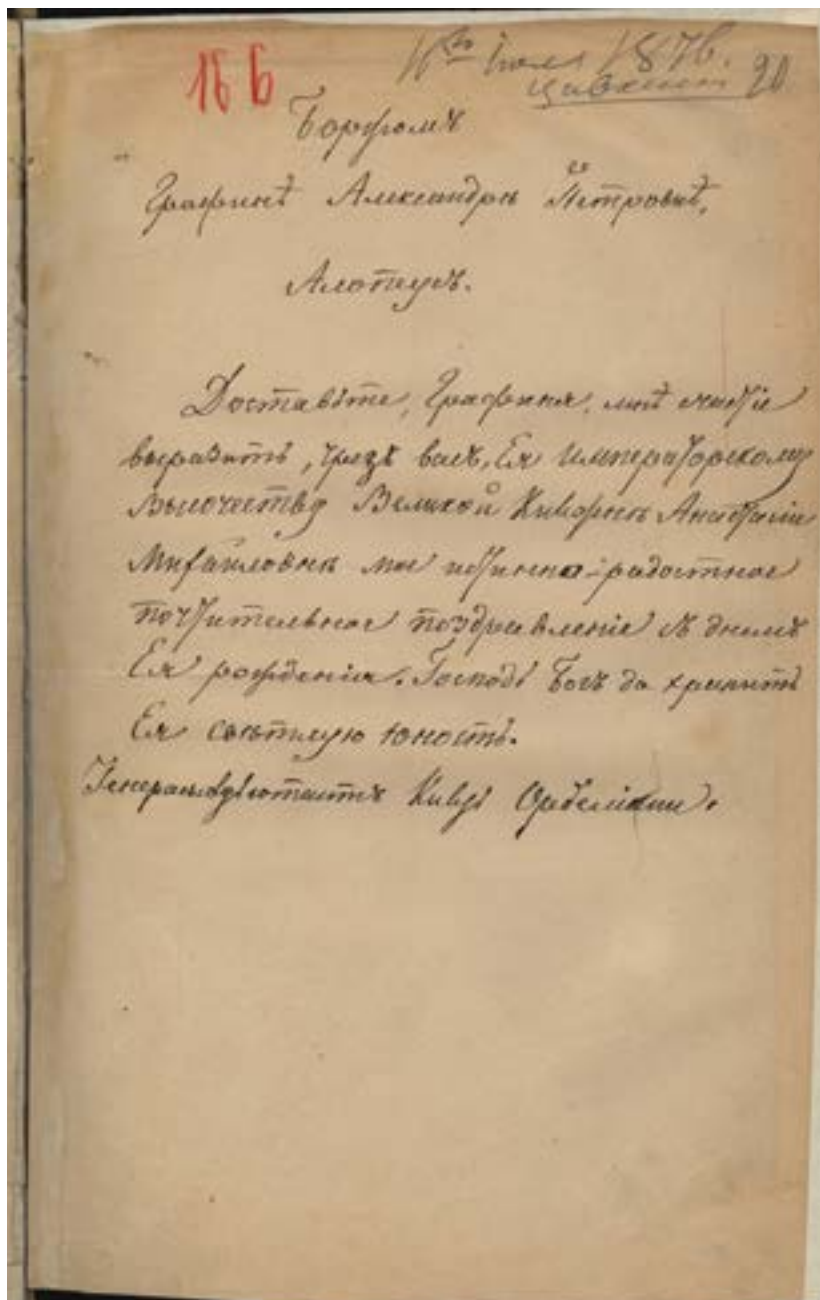 166
16го Іюля 1876. 90
Боржомъ
Графинѣ Александрѣ Петровнѣ,
Алопеусъ.
Доставьте, Графиня, мнѣ счастіе
выразить, чрезъ васъ, Ея Императорскому
Высочеству Великой Княжнѣ Анастасіи
Михайловнѣ мое истинно-радостное
почтительное поздравленіе съ днемъ
Ея рожденія. Господь Богъ да хранитъ
Ея свѣтлую юность.
Генералъ Адъютантъ Князь Орбеліани.